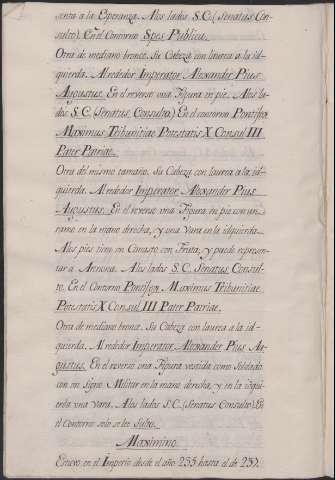 senta a la Esperanza. A los lados S. C. (Senatus Con-
sulto). En el Contorno Spes Publica.
Otra de mediano bronce. Su Cabeza con laurea a la id-
quierda. Al rededor Imperator Alexander Pius
Augustus. En el reverso una Figura en pie. A los la-
dos S. C. (Senatus Consulto.) En el contorno Pontifex
Maximus Tribunitiae Potestatis X Consul III
Pater Patriae.
Otra del mismo tamaño. Su Cabeza con laurea a la id-
quierda. Al rededor Imperator Alexander Pius
Augustus. En el reverso una Figura en pie con un
ramo en la mano derecha, y una Vara en la idquierda.
A los pies tiene un Canasto con Fruta, y puede represen-
tar a Annona. A los lados S. C. Senatus Consul-
to. En el Contorno Pontifex Maximus Tribunitiae
Potestatis X Consul III Pater Patriae.
Otra de mediano bronce. Su Cabeza con laurea a la id-
quierda. Al rededor Imperator Alexander Pius Au-
gustus. En el reverso una Figura vestida como Soldado
con un Signo Militar en la mano derecha, y en la idqui-
erda una vara. A los lados S. C. (Senatus Consulto.) En
el Contorno solo se lee
Maximino.
Estuvo en el Imperio desde el año 235 hasta el de 237.